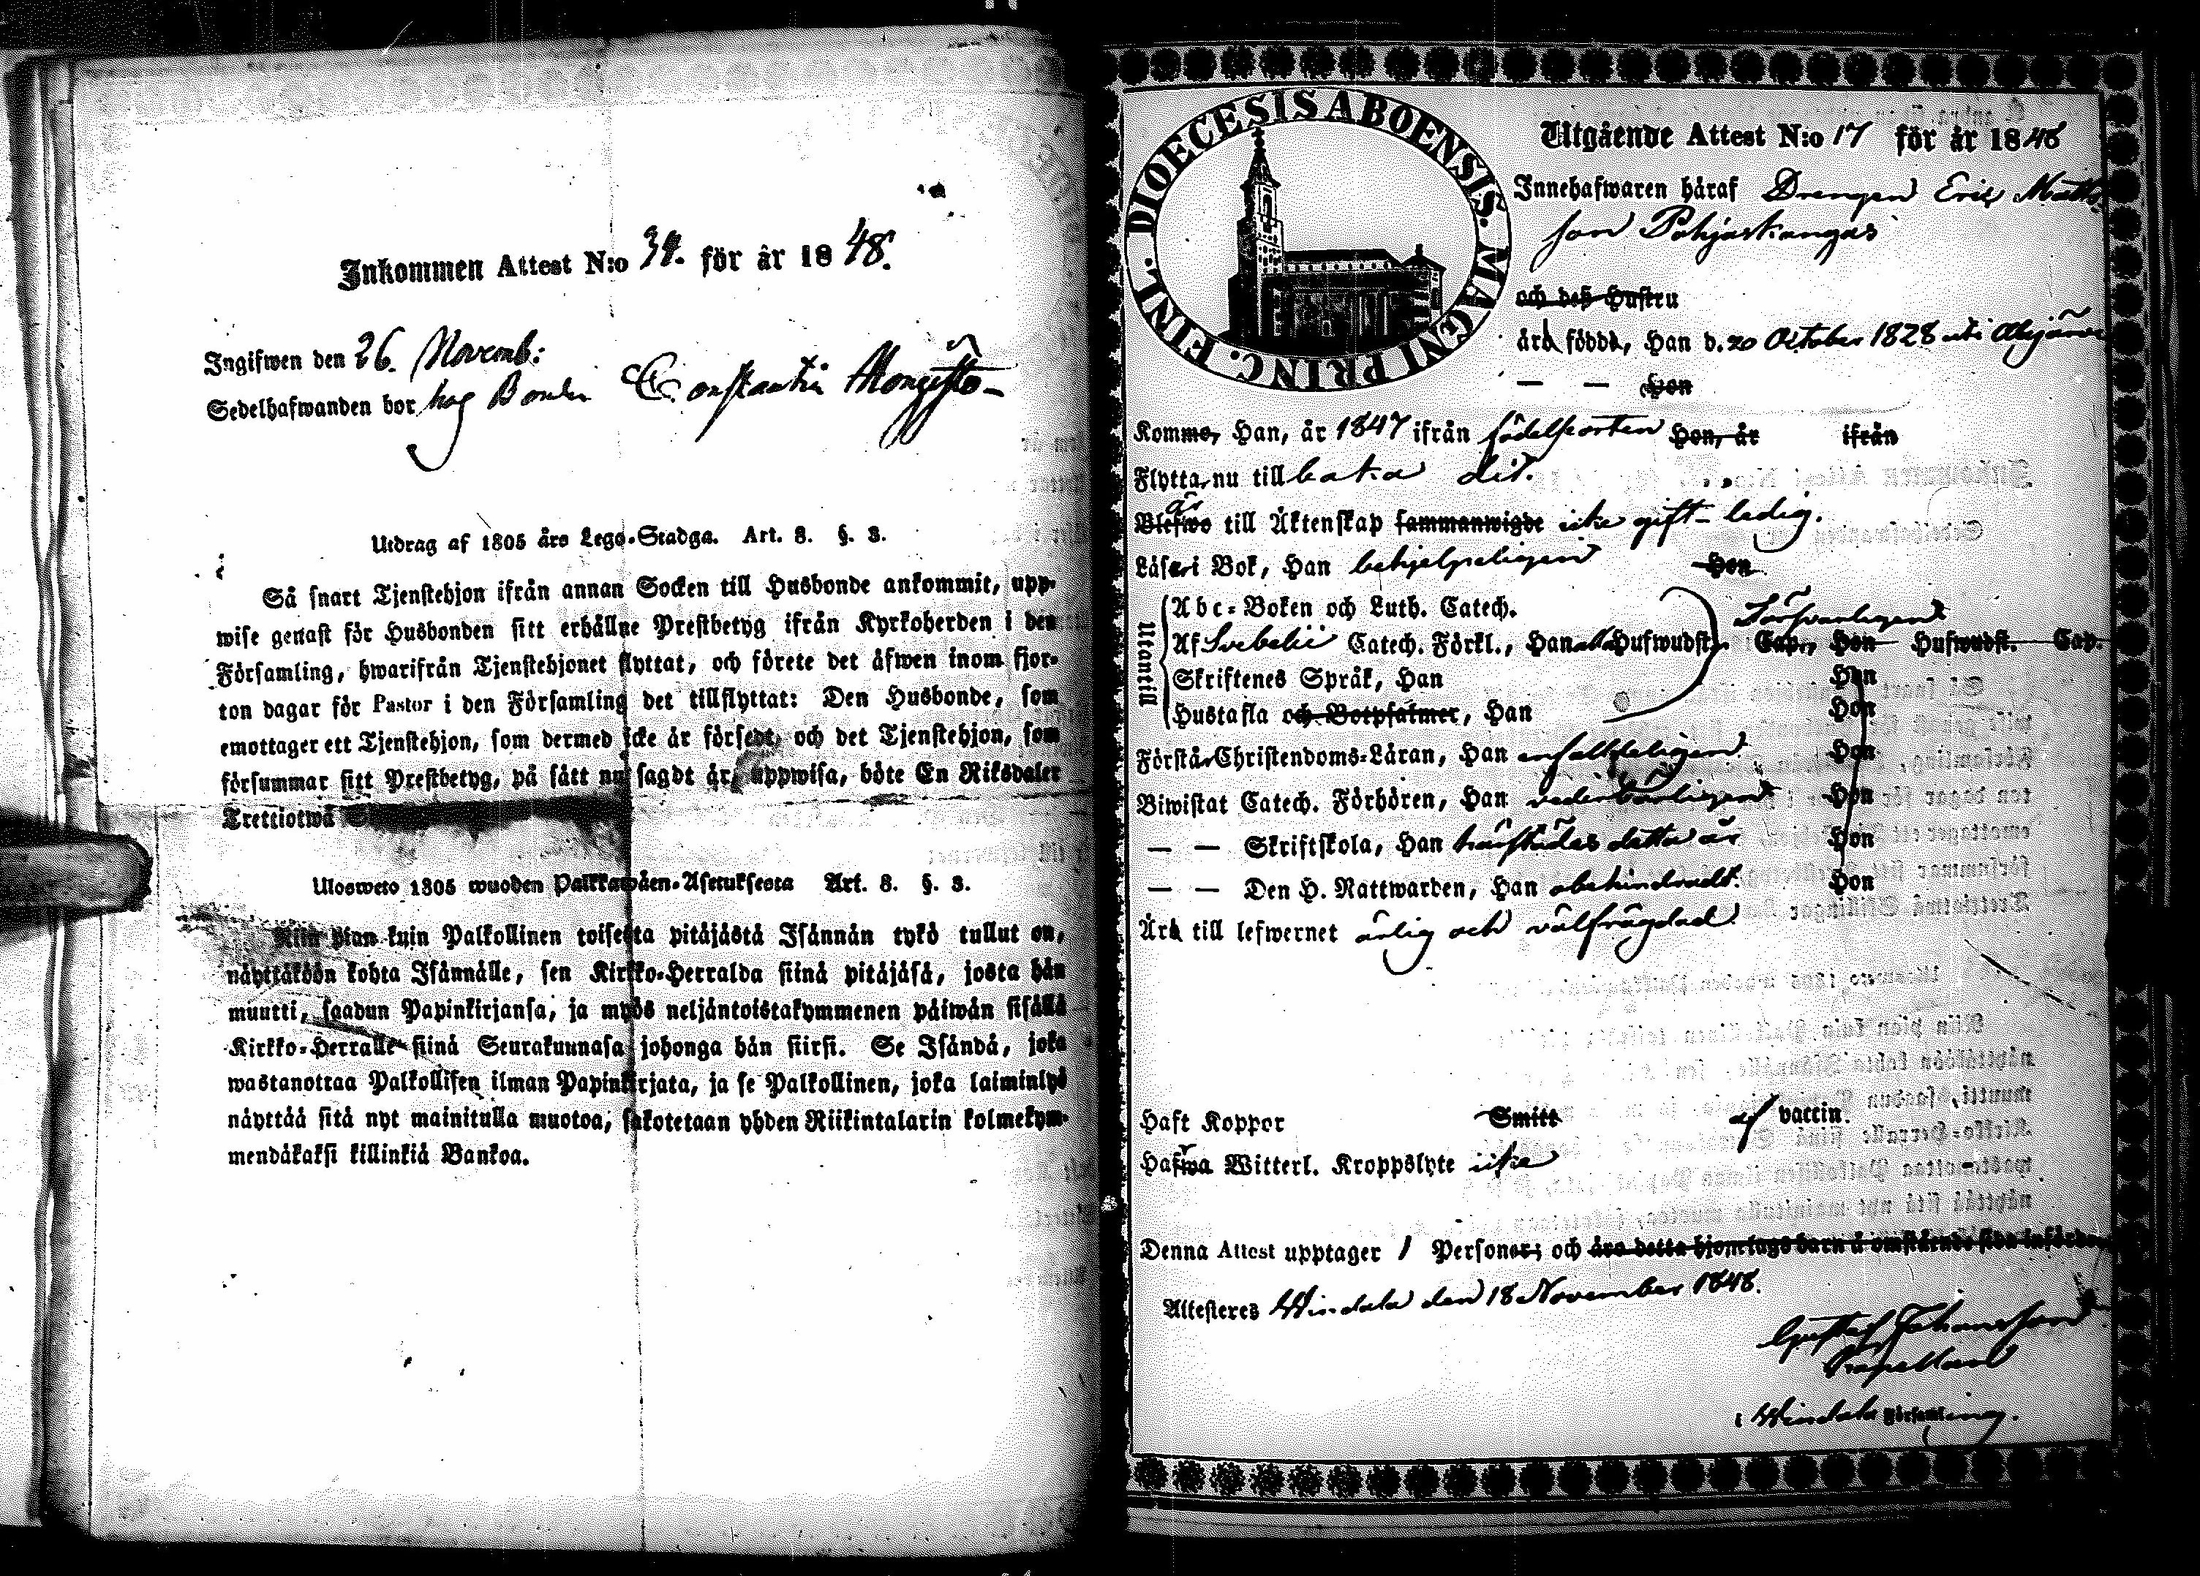 Inkommen Attest N:o 34. för år 1848.
Ingifwen den 26. Novemb:
Sedelhafwanden bor hos Bonden Constantin
Utdrag af 1805 års Lego-Stadga. Art. 8. §. 3.
Så snart Tjenstehjon ifrån annan Socken till Husbonde ankommit, upp-
wise genast för Husbonden sitt erhållne Prestbetyg ifrån Kyrkoherden i den
Församling, hwarifrån Tjenstehjonet flyttat, och förete det äfwen inom fjor-
ton dagar för Pastor i den Församling det tillflyttat: Den Husbonde, som
emottager ett Tjenstehjon, som dermed icke är försedt, och det Tjenstehjon, som
försummar sitt Prestbetyg, på sätt nu sagdt är, uppwisa, böte En Riksdaler
Trettiotwå
Ulosweto 1805 wuoden Palkkawäen-Asetuksesta Art. 8. §. 3.
Niin pian kuin Palkollinen toisesta pitäjästä Isännän tykö tullut on,
näyttäköön kohta Isännälle, sen Kirkko-Herralda siinä pitäjäsä, josta hän
muutti, saadun Papinkirjansa, ja myös neljäntoistakymmenen päiwän sisällä
Kirkko-Herralle siinä Seurakunnasa johonga hän siirsi. Se Isändä, joka
wastanottaa Palkollisen ilman Papinkirjata, ja se Palkollinen, joka laiminlyö
näyttää sitä nyt mainitulla muotoa, sakotetaan yhden Riikintalarin kolmekym-
mendäkaksi killinkiä Bankoa.
DIOECESIS ABOENSIS. MAGNI PRINC. FINL.
Utgående Attest N:o 17 för år 1848
Innehafwaren häraf Drengen Eric Matts-
son Pohjaskangas
och deß Hustru
är född, Han d. 20 October 1828 uti
— — Hon
Komme, Han, år 1847 ifrån födelseorten Hon, år ifrån
Flytta, nu till baka dit.
är
Blefwo till Äktenskap sammanwigde icke gift - ledig.
Läser i Bok, Han behjelpeligen Hon
Utantill
Abc-Boken och Luth. Catech.
Af Svebelii Catech. Förkl., Han Hufwudst. Cap., Hon Hufwudst. Cap.
Försvarligen
Skriftenes Språk, Han Hon
Hustafla och Botpsalmer, Han Hon
Förstår Christendoms-Läran, Han enfaldeligen Hon
Biwistat Catech. Förhören, Han vederbörligen Hon
— — Skriftskola, Han härstädes detta år Hon
— — Den H. Nattwarden, Han obehindradt. Hon
Är till lefwernet ärlig och välfrägdad
Haft Koppor Smitt af vaccin.
Hafwa Witterl. Kroppslyte icke
Denna Attest upptager 1 Personer; och äro detta hjonelags barn å omstående sida införde.
Attesteres Hvindala den 18 November 1848.
Gustaf Johansson
Capellan
i Hvindala Församling.